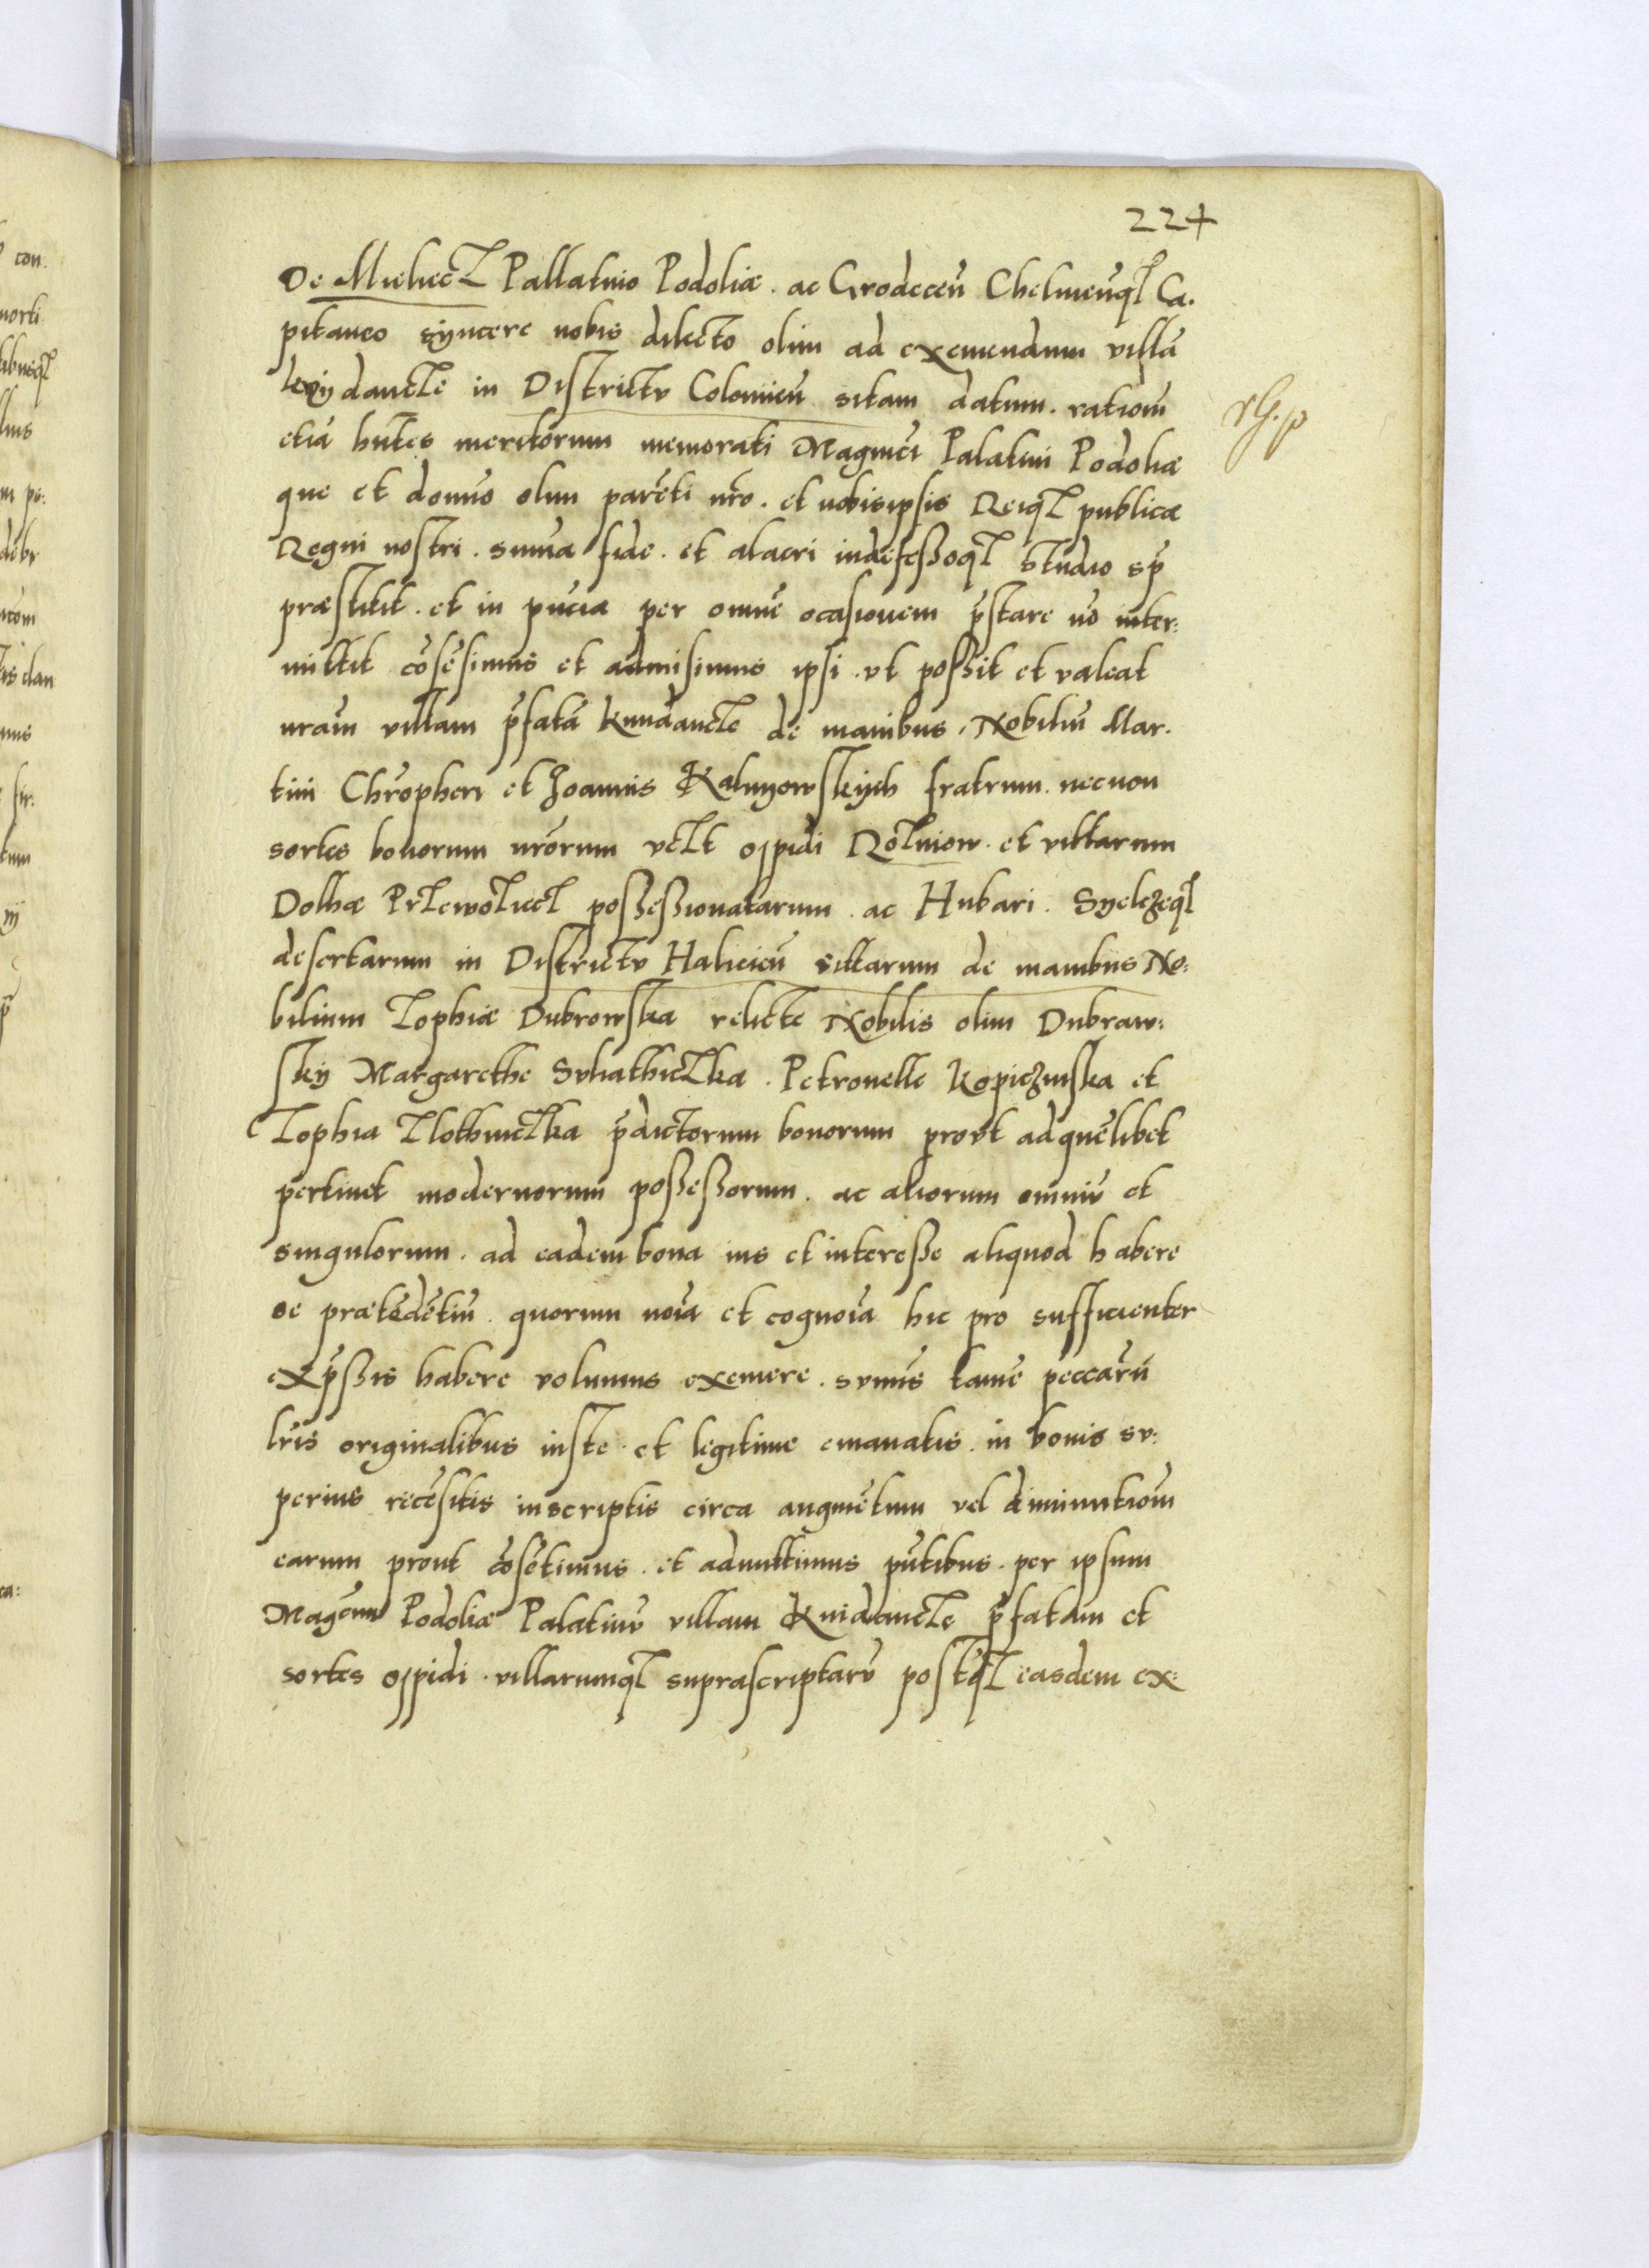 224
De Mieliecz Pallatino Podoliæ. ac Grodeceñ Chelmeñqz Ca.
pitaneo syncere nobis dilecto olim ad exemendum villã
knÿdancze in Districtv Colomieñ sitam datum. ratiom̃
etiã hñtes meritorum memorati Magnici Palatini Podoliæ
que et domĩo olim parẽti nr̃o. et nobisipsis Reiqz publicæ
Regni nostri. summa fide. et alacri indefeßoqz studio sp̃
præstitit. et in pñcia per omnẽ ocasionem p̃stare nõ inter:
mittit cõsẽsimus et admisimus ipsi. vt poßit et valeat
nram̃ villam p̃fatã knidancze de manibus. Nobiliũ Mar.
tini Chrõpheri et Joannis Kalinyowskÿch fratrum. necnon
sortes bonorum nrõrum vczt oppidi Rozniow. et villarum
Dolhæ Przewoziecz poßeßionatarum. ac Hubari. Syelczeqz
desertarum in Districtv Halicieñ sittarum de manibus No:
bilium Zophiæ Dubrowska relicte Nobilis olim Dubraw:
skÿ Margarethe Svliathiczka. Petronelle kopiczinska et
Zophia Zlothniczka p̃dictorum bonorum provt adquẽlibet
pertinet modernorum poßeßorum. ac aliorum omniũ et
singulorum. ad eadem bona ius et intereße aliquod habere
se prætẽdẽtiũ. quorum noĩa et cognoĩa hic pro sufficienter
exp̃ßis habere volumus exemere. svmĩs tamẽ peccarũ
lrĩs originalibus iuste. et legitime emanatis. in bonis sv:
perius recẽsitis inscriptis circa augmẽtum vel diminutiom̃
earum prout cõsẽtimus. et admittimus pñtibus. per ipsum
Magcum̃ Podoliæ Palatinũ villam Knidancze p̃fatam et
sortes oppidi. villarumqz suprascriptarũ postqz easdem ex: